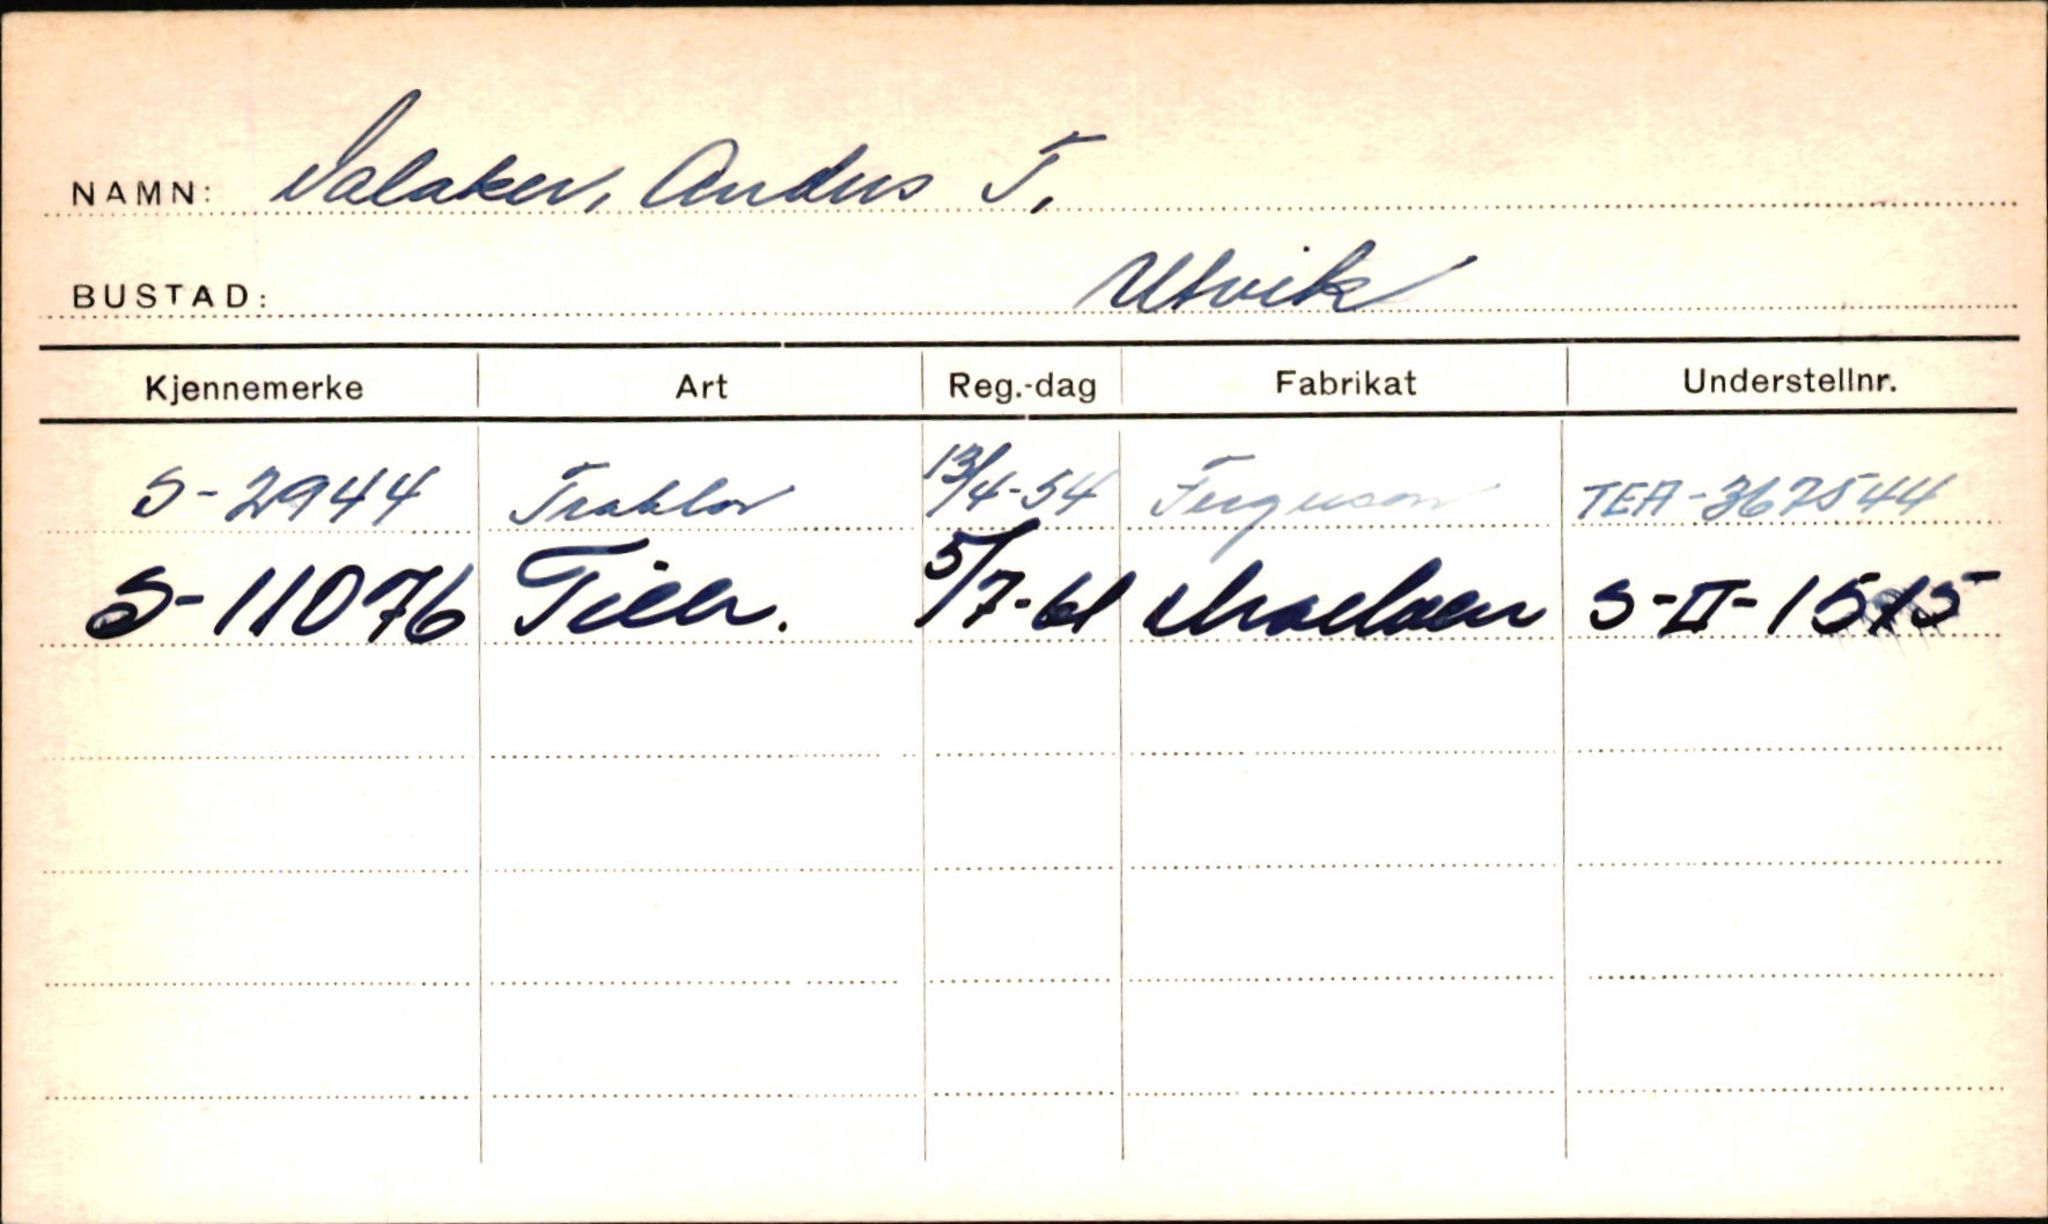 NAMN: Valaker, Anders T.
BUSTAD: Utvik
Kjennemerke Art Reg.-dag Fabrikat Understellnr.
S-2944 Traktor 13/4-54 Ferguson TEA-367544
S-11076 Tilh. 5/7-61 S-II-1515